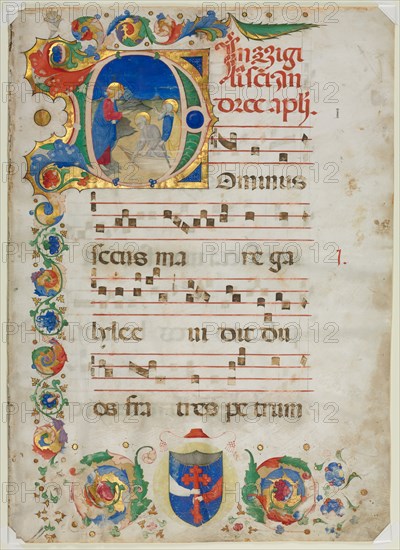 In vigi
lia sci an
dree apli.
Dominus
secus ma re ga
lylee vi dit du
os fra tres petrum